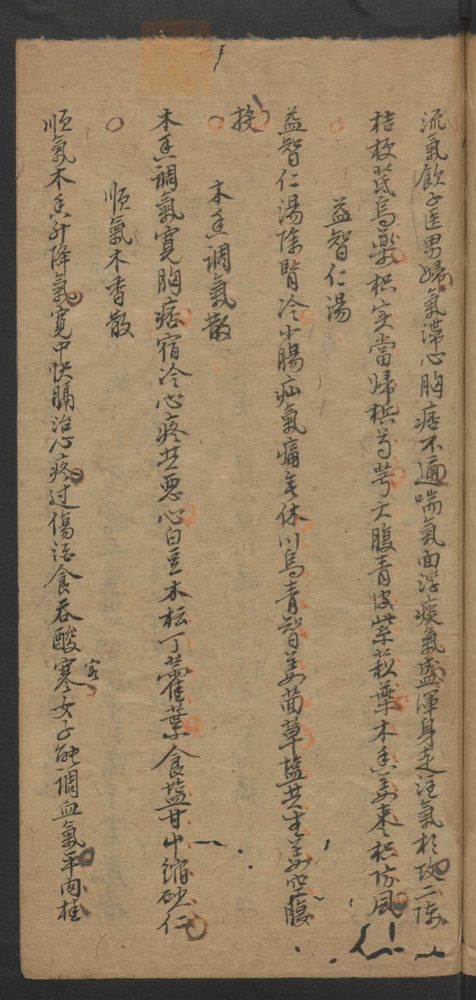 流氣飲子医男婦氣滯心胸痞不通喘氣面浮痰氣盛渾身走注氣於攻二陳
桔梗芪烏藥枳实當归槟芍芎大腹青皮紫蘇葉木香姜枣枳防風
益智仁湯
益智仁湯除腎冷小腸疝氣痛无休川烏青智姜茴草塩共生姜空腹
投
木香調氣散
木香調氣寬胸痞宿冷心疼共恶心白豆木檀丁藿葉食塩甘中縮砂仁
順氣木香散
順氣木香升降氣寬中快膈治心疼过傷活食吞酸寒客女子能調血氣平肉桂